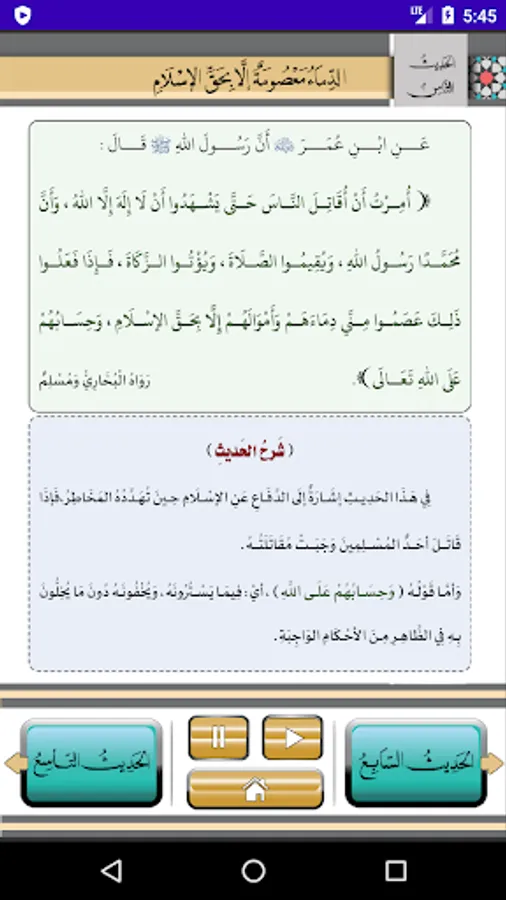 LTE 5:45
الحديث
الثامن
الدِّمَاءُ مَعْصُومَةٌ إِلَّا بِحَقِّ الإِسْلَامِ
عَـــنِ ابْــنِ عُمَــرَ ﵄ أَنَّ رَسُـــولَ اللهِ ﷺ قَــالَ :
﴿ أُمِرْتُ أَنْ أُقَاتِلَ النَّاسَ حَتَّى يَشْهَدُوا أَنْ لَا إِلَهَ إِلَّا اللهُ ، وَأَنَّ
مُحَمَّدًا رَسُولُ اللهِ ، وَيُقِيمُوا الصَّلَاةَ ، وَيُؤْتُوا الزَّكَاةَ ، فَإِذَا فَعَلُوا
ذَلِكَ عَصَمُوا مِنِّي دِمَاءَهُمْ وَأَمْوَالَهُمْ إِلَّا بِحَقِّ الإِسْلَامِ ، وَحِسَابُهُمْ
عَلَى اللهِ تَعَالَى ﴾. رَوَاهُ الْبُخَارِيُّ وَمُسْلِمٌ
( شَرْحُ الحَديثِ )
فِي هَذَا الحَدِيثِ إِشَارَةٌ إِلَى الدِّفَاعِ عَنِ الإِسْلَامِ حِينَ تُهَدِّدُهُ المَخَاطِرُ،فَإِذَا
قَاتَلَ أَحَدٌ المُسْلِمِينَ وَجَبَتْ مُقَاتَلَتُهُ .
وَأَمَّا قَوْلُهُ ( وَحِسَابُهُمْ عَلَى اللهِ ) ، أَيْ: فِيمَا يَسْتُرُونَهُ ، وَيُخْفُونَهُ دُونَ مَا يُخِلُّونَ
بِهِ فِي الظَّاهِرِ مِنَ الأَحْكَامِ الوَاجِبَةِ.
الحديث السابع
الحديث التاسع